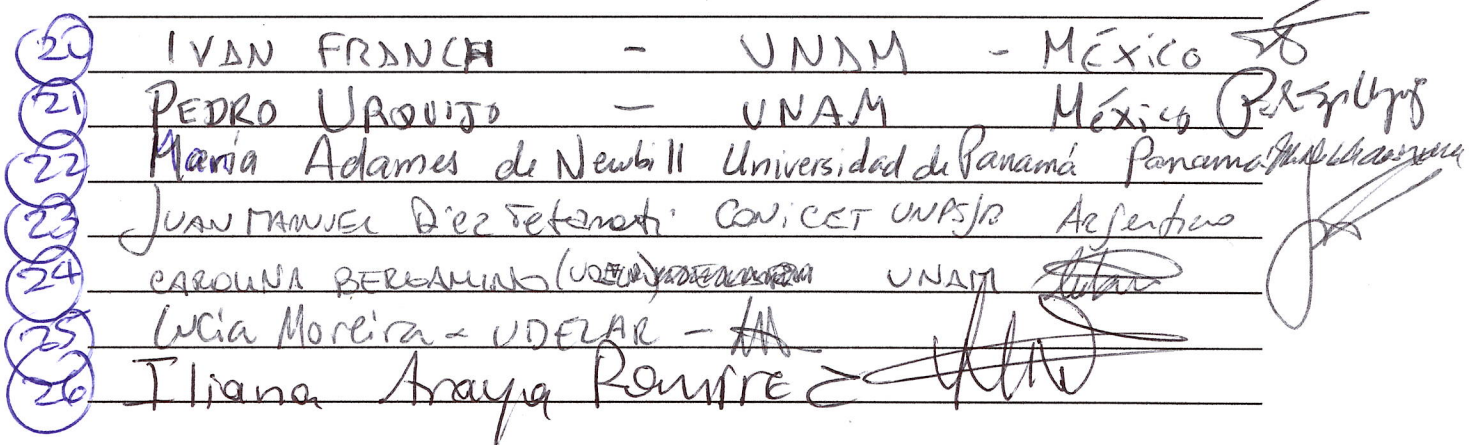 20 IVAN FRANCH - UNAM - México
21 PEDRO URQUIJO - UNAM México
22 María Adames de Newbill Universidad de Panamá Panama
23 JUAN MANUEL Diez Tetamanti CONICET UNPSJB Argentina
24 CAROLINA BERGAMINO UNAM
25 Lucía Moreira - UDELAR -
26 Iliana Araya Ramírez